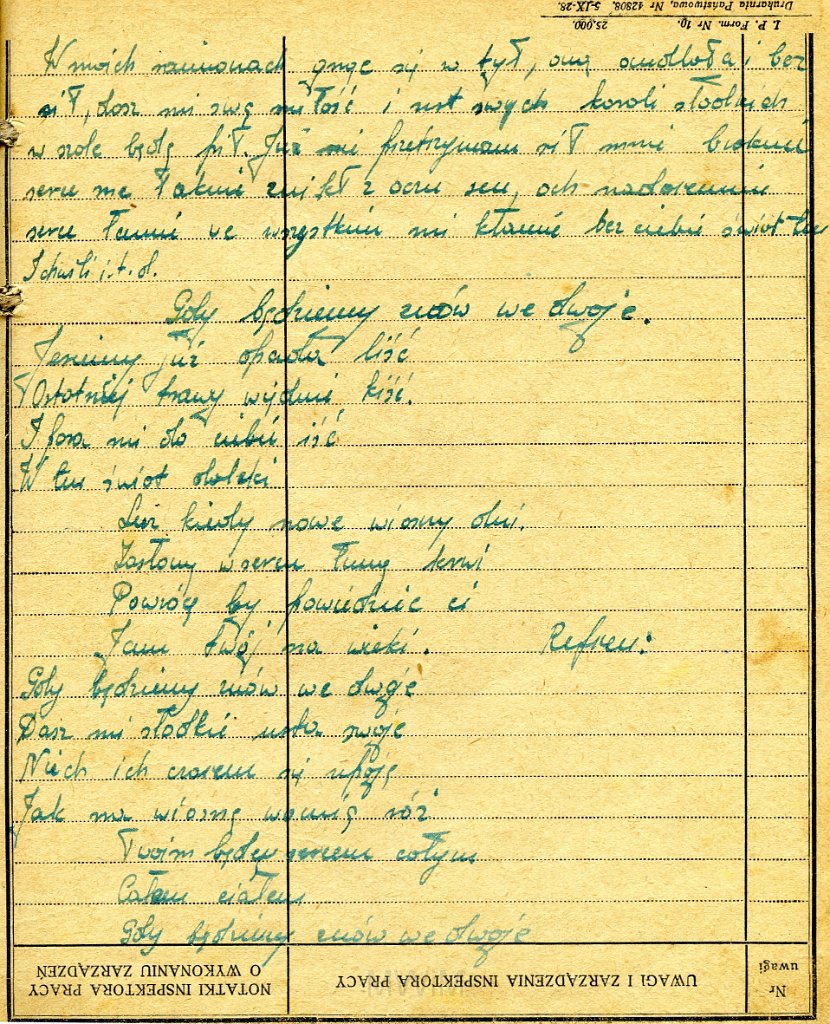 I. P. Form. Nr 19. 25.000.
Drukarnia Państwowa, Nr 42808. 5-IX-28.
W moich ramionach gnąc się w tył, omdlała i bez
sił, dasz mi swą miłość i ust swych korali słodkich
w szale będę pił. Już mi przetrzymam sił mnie braknie
serce me łaknie znikł z oczu sen, och nadaremnie
serce we wszystkim mi kłamie bez ciebie świat ten
I chwili i. t. d.
Gdy będziemy znów we dwoje.
Jesienny już opada liść
Ostatniej trawy więdnie kiść.
I pora mi do ciebie iść
W ten świat daleki
Lecz kiedy nowe wiosny dni.
w sercu krwi
Powrócę by powiedzieć ci
Jam twój na wieki. Refren:
Gdy będziemy znów we dwoje
Dasz mi słodkie usta swoje
Niech ich czarem się upoję
Jak na wiosnę wonią róż
Twoim będę sercem całym
Całem ciałem
Gdy będziemy znów we dwoje
Nr uwagi
UWAGI I ZARZĄDZENIA INSPEKTORA PRACY
NOTATKI INSPEKTORA PRACY
O WYKONANIU ZARZĄDZEŃ